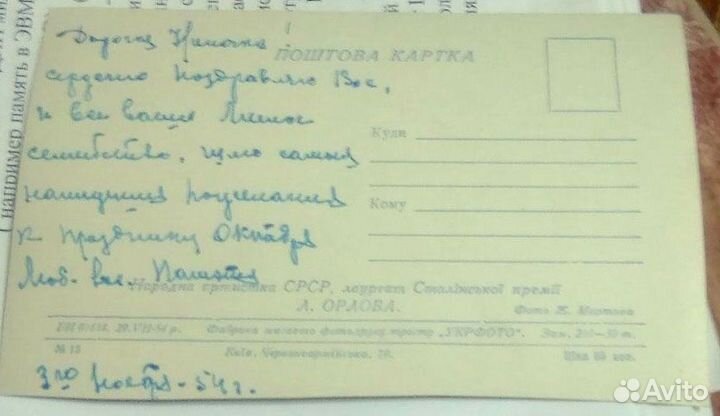 ( например память в ЭВМ
Дорогая Ниночка!
ПОШТОВА КАРТКА
сердечно поздравляю Вас,
и все ваше милое
семейство, шлю самые
наилучшие пожелания
к празднику Октября
Люб. вас
Куди
Кому
Народна артистка СРСР, лауреат Сталінської премії
А. ОРЛОВА.
Фото
29.VII-54 р. Фабрика масового фотодруку тресту „УКРФОТО". Зам.
№ 15 Київ, Червоноармійська, Ціна коп.
3го ноября - 54 г.
Avito